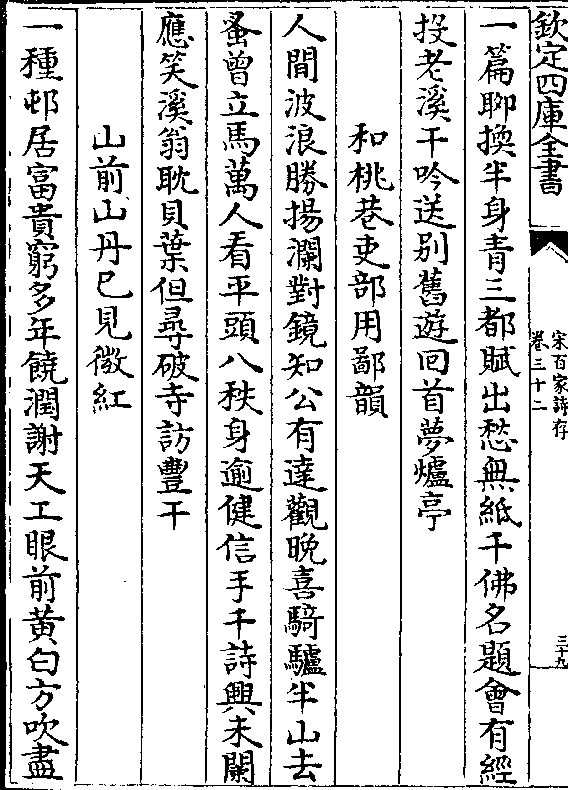 欽定四庫全書
宋百家詩存
卷三十二
三十九
一篇聊換半身青三都賦出愁無紙千佛名題會有經
投老溪干吟送别舊遊回首夢爐亭
和桃巷吏部用鄙韻
人間波浪勝揚瀾對鏡知公有達觀晚喜騎驢半山去
蚤曾立馬萬人看平頭八秩身逾健信手千詩興未闌
應笑溪翁耽貝葉但尋破寺訪豐干
山前山丹已見微紅
一種邨居富貴窮多年饒潤謝天工眼前黄白方吹盡